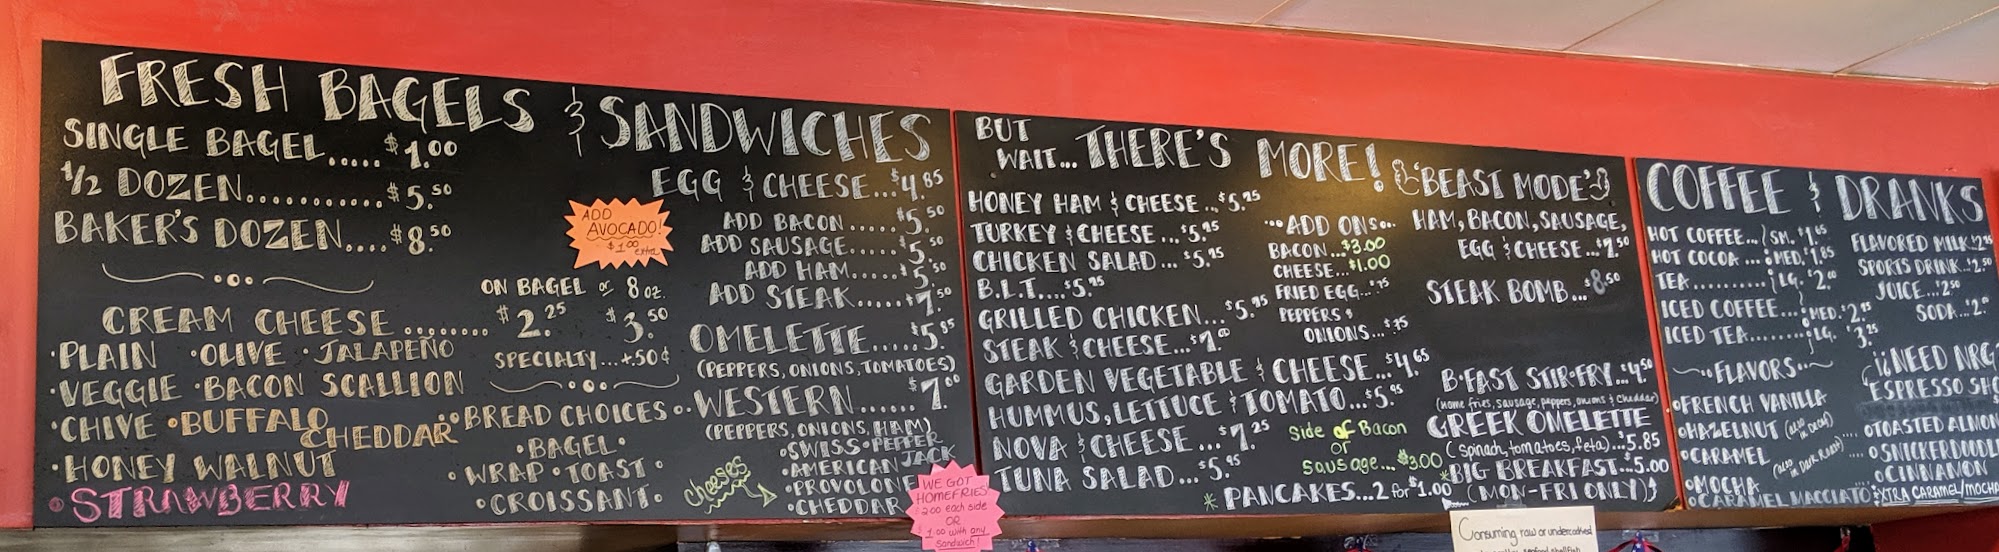 FRESH BAGELS & SANDWICHES
SINGLE BAGEL..... $1.00
1/2 DOZEN............ $5.50
BAKER'S DOZEN.... $8.50
CREAM CHEESE ........ $2.25 $3.50
ON BAGEL or 8 oz.
SPECIALTY...+.50¢
•PLAIN •OLIVE •JALAPEÑO
•VEGGIE •BACON SCALLION
•CHIVE •BUFFALO CHEDDAR
•HONEY WALNUT
•STRAWBERRY
BREAD CHOICES
•BAGEL•
•WRAP •TOAST•
•CROISSANT•
ADD
AVOCADO!
$1.00
extra
EGG & CHEESE...$4.85
ADD BACON.....$5.50
ADD SAUSAGE....$5.50
ADD HAM.....$5.50
ADD STEAK.....$7.50
OMELETTE.....$5.85
(PEPPERS, ONIONS, TOMATOES)
WESTERN......$7.00
(PEPPERS, ONIONS, HAM)
Cheeses
•SWISS •PEPPER JACK
•AMERICAN
•PROVOLONE
•CHEDDAR
WE GOT
HOMEFRIES
2.00 each side
OR
1.00 with any
sandwich!
BUT
WAIT... THERE'S MORE!
HONEY HAM & CHEESE...$5.95
TURKEY & CHEESE...$5.95
CHICKEN SALAD...$5.95
B.L.T....$5.95
GRILLED CHICKEN...$5.95
STEAK & CHEESE...$7.00
GARDEN VEGETABLE & CHEESE...$4.65
HUMMUS, LETTUCE & TOMATO...$5.95
NOVA & CHEESE...$7.25
TUNA SALAD...$5.95
...ADD ONS...
BACON...$3.00
CHEESE...$1.00
FRIED EGG...$.75
PEPPERS &
ONIONS...$.75
Side of Bacon
or
sausage...$3.00
* PANCAKES...2 for $1.00
'BEAST MODE'
HAM, BACON, SAUSAGE,
EGG & CHEESE...$7.50
STEAK BOMB...$8.50
B•FAST STIR•FRY...$4.50
(home fries, sausage, peppers, onions & cheddar)
GREEK OMELETTE
(spinach, tomatoes, feta)...$5.85
*BIG BREAKFAST...$5.00
(MON-FRI ONLY)
Consuming raw or undercooked
COFFEE & DRANKS
HOT COFFEE... SM. $1.65
HOT COCOA... MED. $1.85
TEA......... LG. $2.00
ICED COFFEE... MED. $2.75
ICED TEA....... LG. $3.25
FLAVORED MILK
SPORTS DRINK...$2.50
JUICE...$2.50
SODA...$2.00
FLAVORS
•FRENCH VANILLA
•HAZELNUT (also in Decaf)
•CARAMEL (also in Dark Roast)
•MOCHA
•CARAMEL MACCIATO
¡¿NEED NRG
ESPRESSO
•TOASTED ALMON
•SNICKERDOODL
•CINNAMON
XTRA CARAMEL/MOCHA